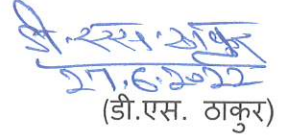 डी.एस.ठाकुर
27.6.2022
(डी.एस. ठाकुर)